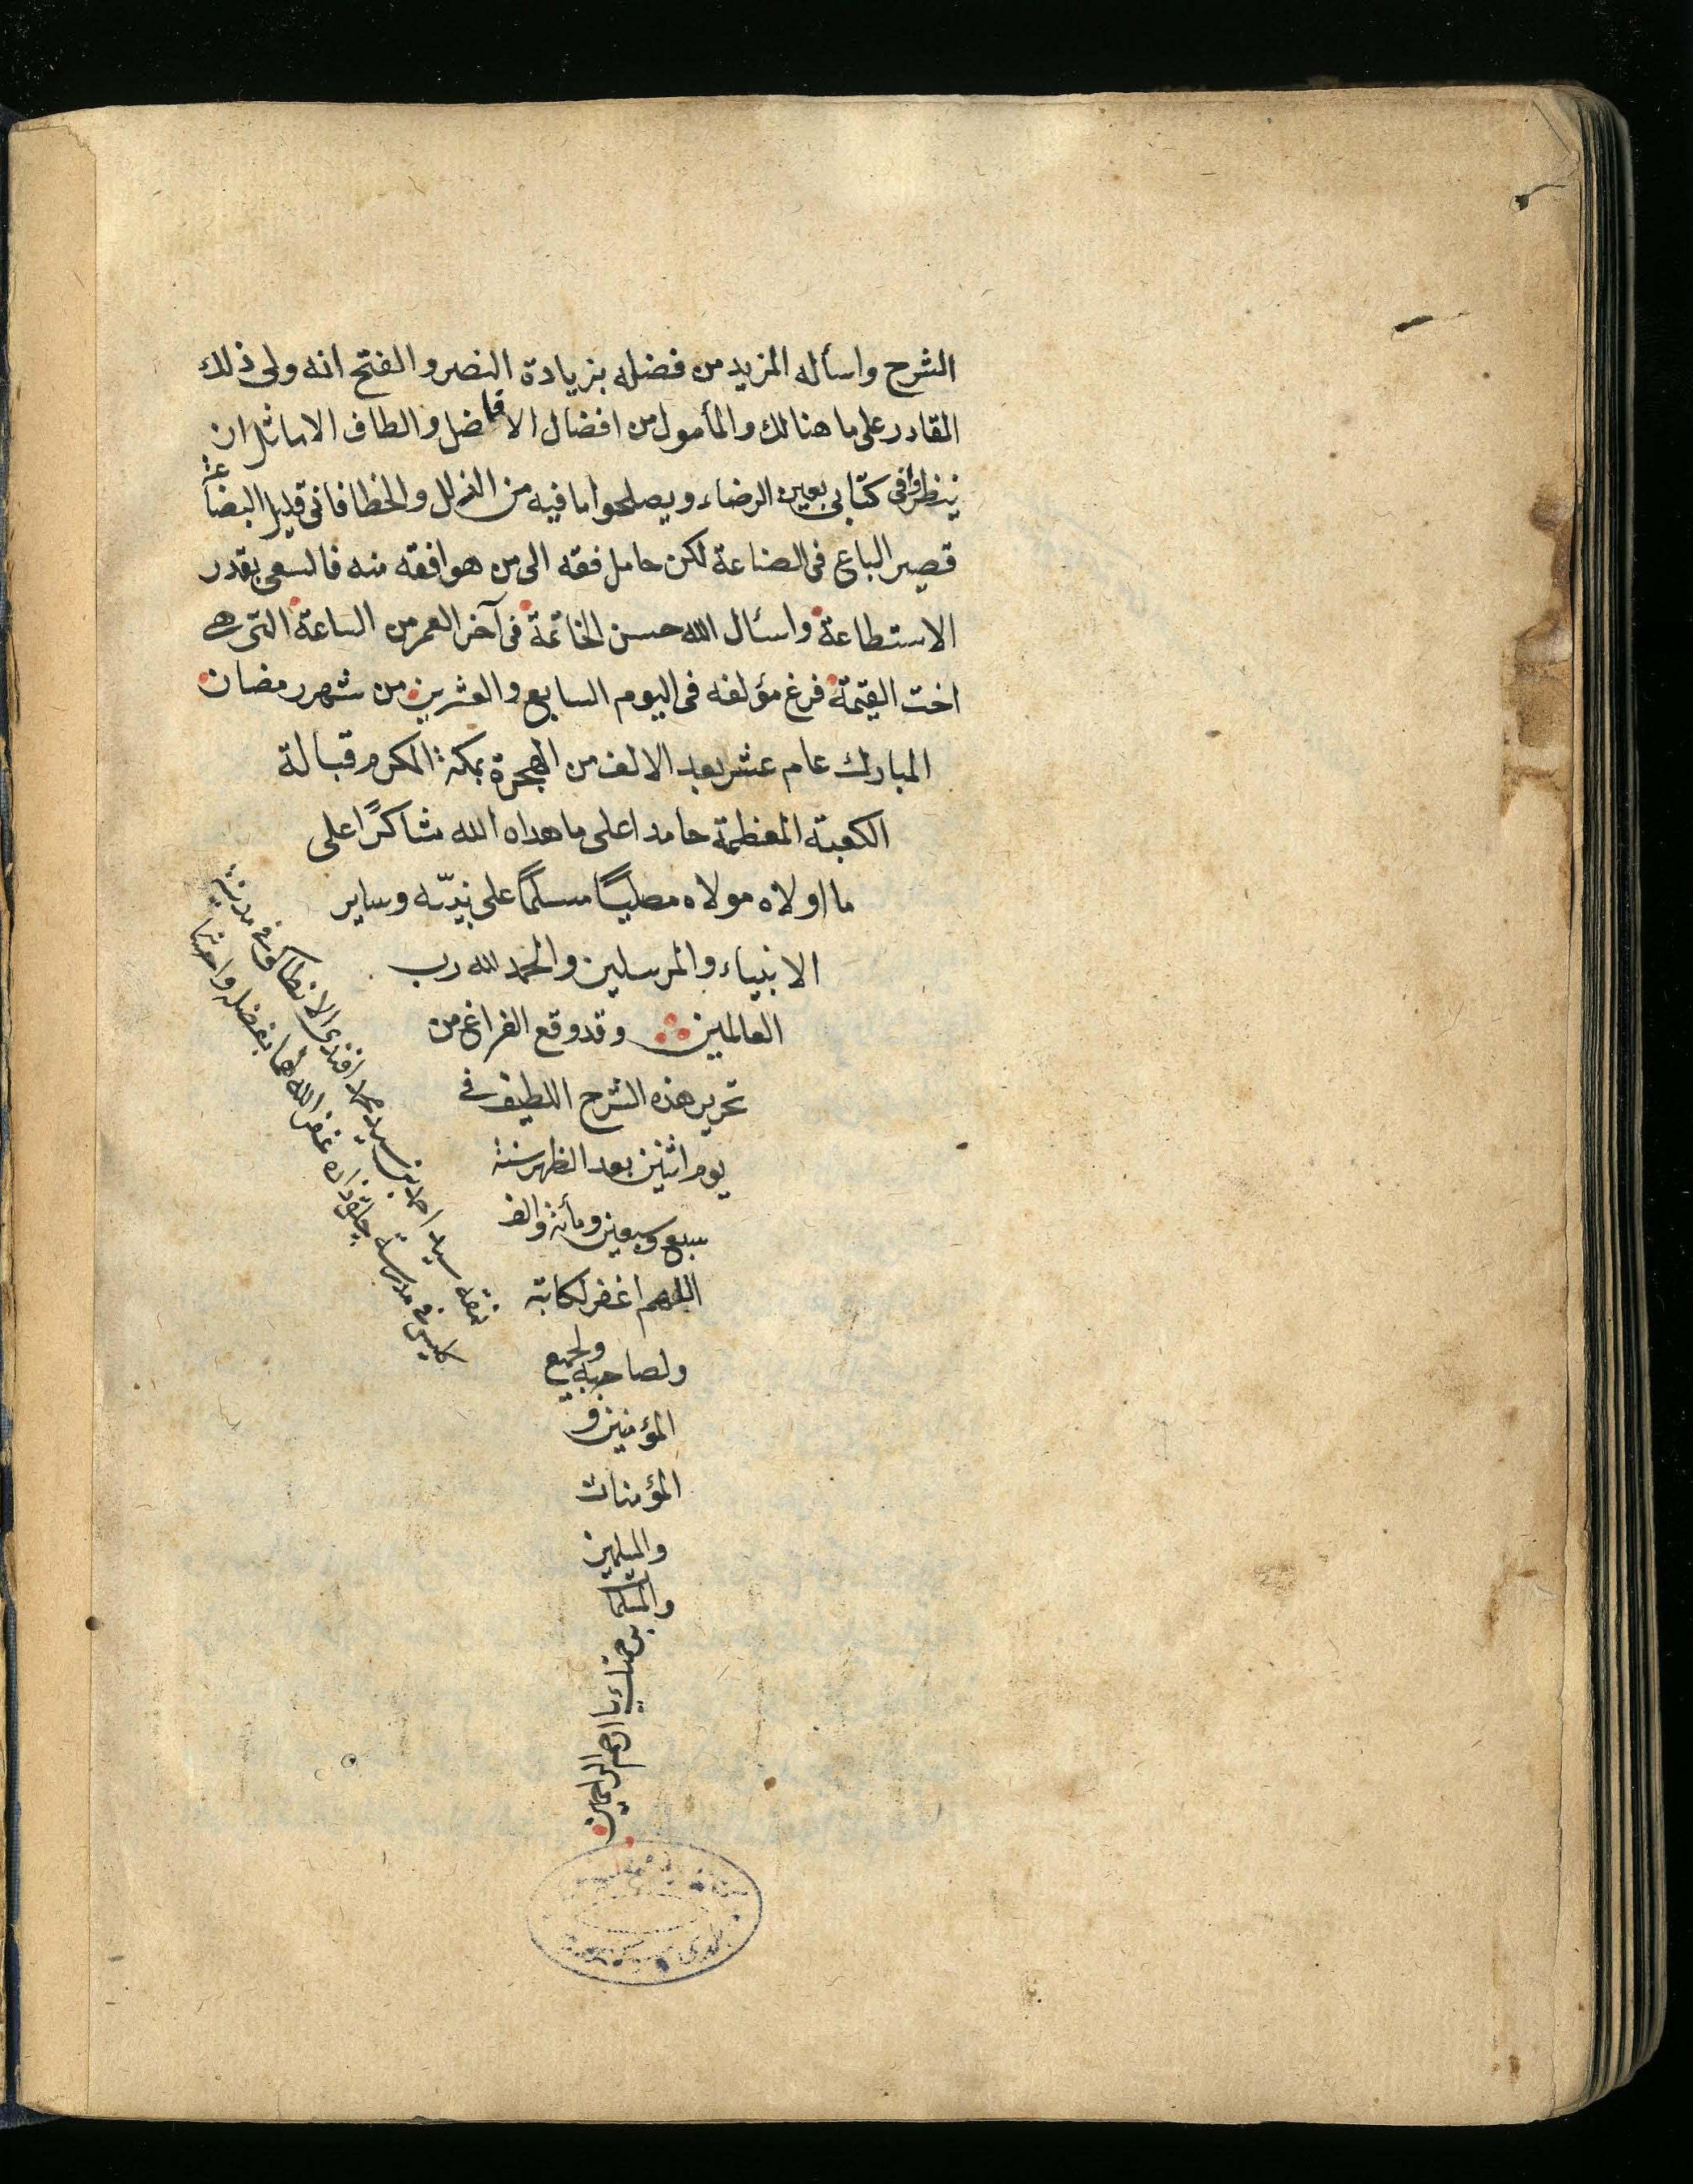 الشرح واسأله المزيد من فضله بزيادة النصر والفتح انه ولى ذلك
القادر على ما هنالك والمأمول من افضال الافاضل والطاف الاماثل ان
ينظروا فى كتابى بعين الرضاء ويصلحوا ما فيه من الزلل والخطا فانى قليل البضاعة
قصير الباع فى الصناعة لكن حامل فقه الى من هو افقه منه فالسعى بقدر
الاستطاعة واسئال الله حسن الخاتمة فى آخر العمر من الساعة التى هى
اخت القيمة فرغ مؤلفه فى اليوم السابع والعشرين من شهر رمضان
المبارك عام عشر بعد الالف من الهجرة بمكة المكرم قبالة
الكعبة المعظمة حامدا على ما هداه الله شاكرًا على
ما اولاه مولاه مصليًا مسلمًا على نبيّه وساير
الانبياء والمرسلين والحمد لله رب
العالمين وقد وقع الفراغ من
تحرير هذه الشرح اللطيف فى
يوم اثنين بعد الظهر سنة
سبع وسبعين ومأئة والف
اللهم اغفر لكاتبه
ولصاحبه ولجميع
المؤمنين و
المؤمنات
والمسلمين
والمسلما
برحمتك يا ارحم الراحمين
نمقه سيد احمد بن سيد افندى الانطاكى فى مدينة
فى مدرسة غفر الله لهما بفضله